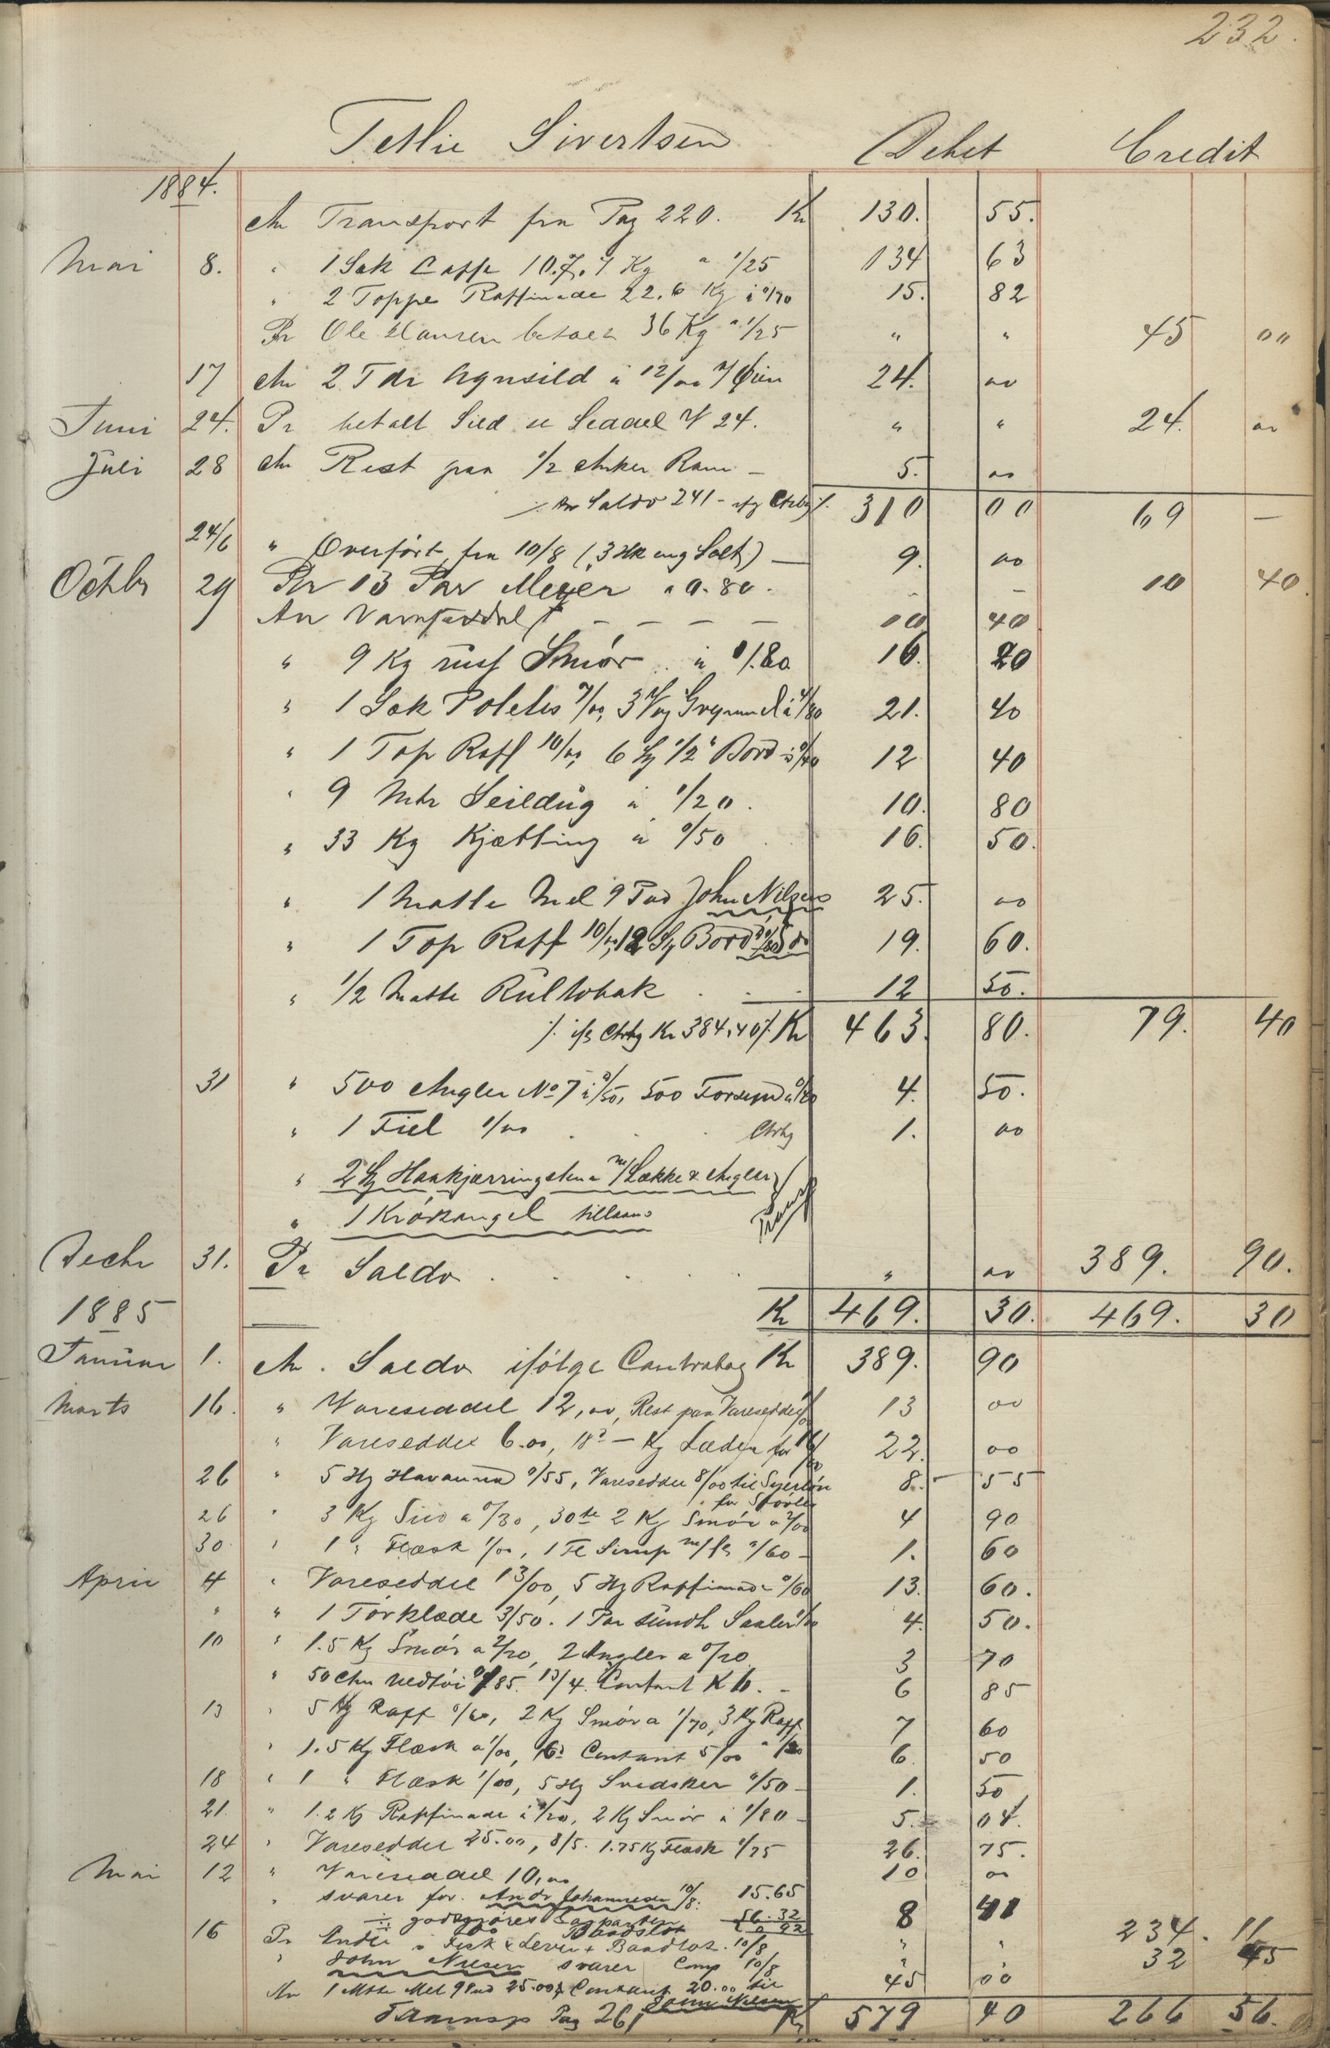 232.
Tetlie Sivertsen Debet Credit
1884.
An Transport fra Pag 220. Kr 130. 55.
Mai 8. " 1 Sæk Caffe 107.7 Kg a 1/25 134 63
" 2 Toppe Raffinade 22.6 Kg à 0/70 15. 82
Pr Ole Hansen betalt 36 Kg a 1/25 " " 45 00
17 An 2 Tdr Agnsild à 12/00 24. 00
Juni 24. Pr betalt Sild se Seddel N 24. " " 24. 00
Juli 28 An Rest paa 1/2 Anker Rom — 5. 00
An Saldo 241 - ifg Ctrbg /. 310 00 69 —
24/6 " Overført fra 10/8 (3 Salt) — 9. 00
Octbr 29 Pr 13 Par Meyer a 0.80. - - 10 40
An — — — — 10 40
" 9 Kg Smør à 1/.80 16. 20
" 1 Sæk Potetes 7/00, 3 Vog à 4/80 21. 40
" 1 Top Raff 10/00, 6 1/2" Bord à 0/40 12 40
" 9 Mtr Seildug à 1/20. 10. 80
" 33 Kg Kjætting à 0/50 16. 50.
" 1 Matte Mel 9 Pud John Nilsen 25. 00
" 1 Top Raff 10/00, 12 Bord 19. 60.
" 1/2 Matte Rultobak . . . 12 50.
/. ifg Ctrbg Kr 384.40 /. Kr 463. 80. 79. 40
31 " 500 Angler No 7 500 4. 50.
" 1 Fiil 1/00 . . Ctrbg 1. 00
" 2 Haakjærringstene m/ Lække & Angler
" 1 Krokangel tillaans
Decbr 31. Pr Saldo . . . . . " 00 389. 90.
1885 Kr 469. 30. 469. 30
Januar 1. An. Saldo ifølge Contrabog Kr 389. 90
Marts 16. " Vareseddel 12,00, Rest paa Vareseddel 13 00
" Vareseddel 6.00, Kg Læder for 22. 00
26 " 5 Hg Havanna 0/55, Vareseddel 8/00 til 8. 55
for Støvler
26 " 3 Kg a 0/30, 30te 2 Kg Smør a 2/00 4 90
30 " 1 " Flæsk 1/00, 1 Fl Sirup m/fl 0/60 — 1. 60
April 4 " Vareseddel 13/00, 5 Hg Raffinade 0/60 13. 60.
" " 1 Tørklæde 3/50. 1 Par Saaler 1/00 4. 50.
10 " 1.5 Kg Smør a 2/20, 2 Angler a 0/20 3 70
" 50 Ctm 0/85. 13/4. Contant K 6. - 6 85
13 " 5 Hg Raff 0/60, 2 Kg Smør a 1/70, 3 Kg Raff 7 60
" 1.5 Kg Flæsk a 1/00, Contant 5/00 6. 50
18 " 1 " Flæsk 1/00, 5 Hg Svedsker 0/50 — 1. 50
21. " 1.2 Kg Raffinade à 1/20, 2 Kg Smør à 1/80 — 5. 04.
24 " Vareseddel 25.00, 8/5. 1.75 Kg Flæsk 1/75 26. 75.
Mai 12 " Vareseddel 10,00 10 00
" svarer for. Andr Johannesen 10/8. 15.65
godtgjøres Baadslot 8
16 Pr Andel i Fisk & Lever + Baadlot. 10/8 " " 234. 11
" John Nilsen svarer Comp 10/8 " " 32 45
An 1 Mtte Mel 9 Pud 25.00 & Contant 20.00 til 45 00
John Nilsen
Transp Pag 261 Kr 579 40 266 56.